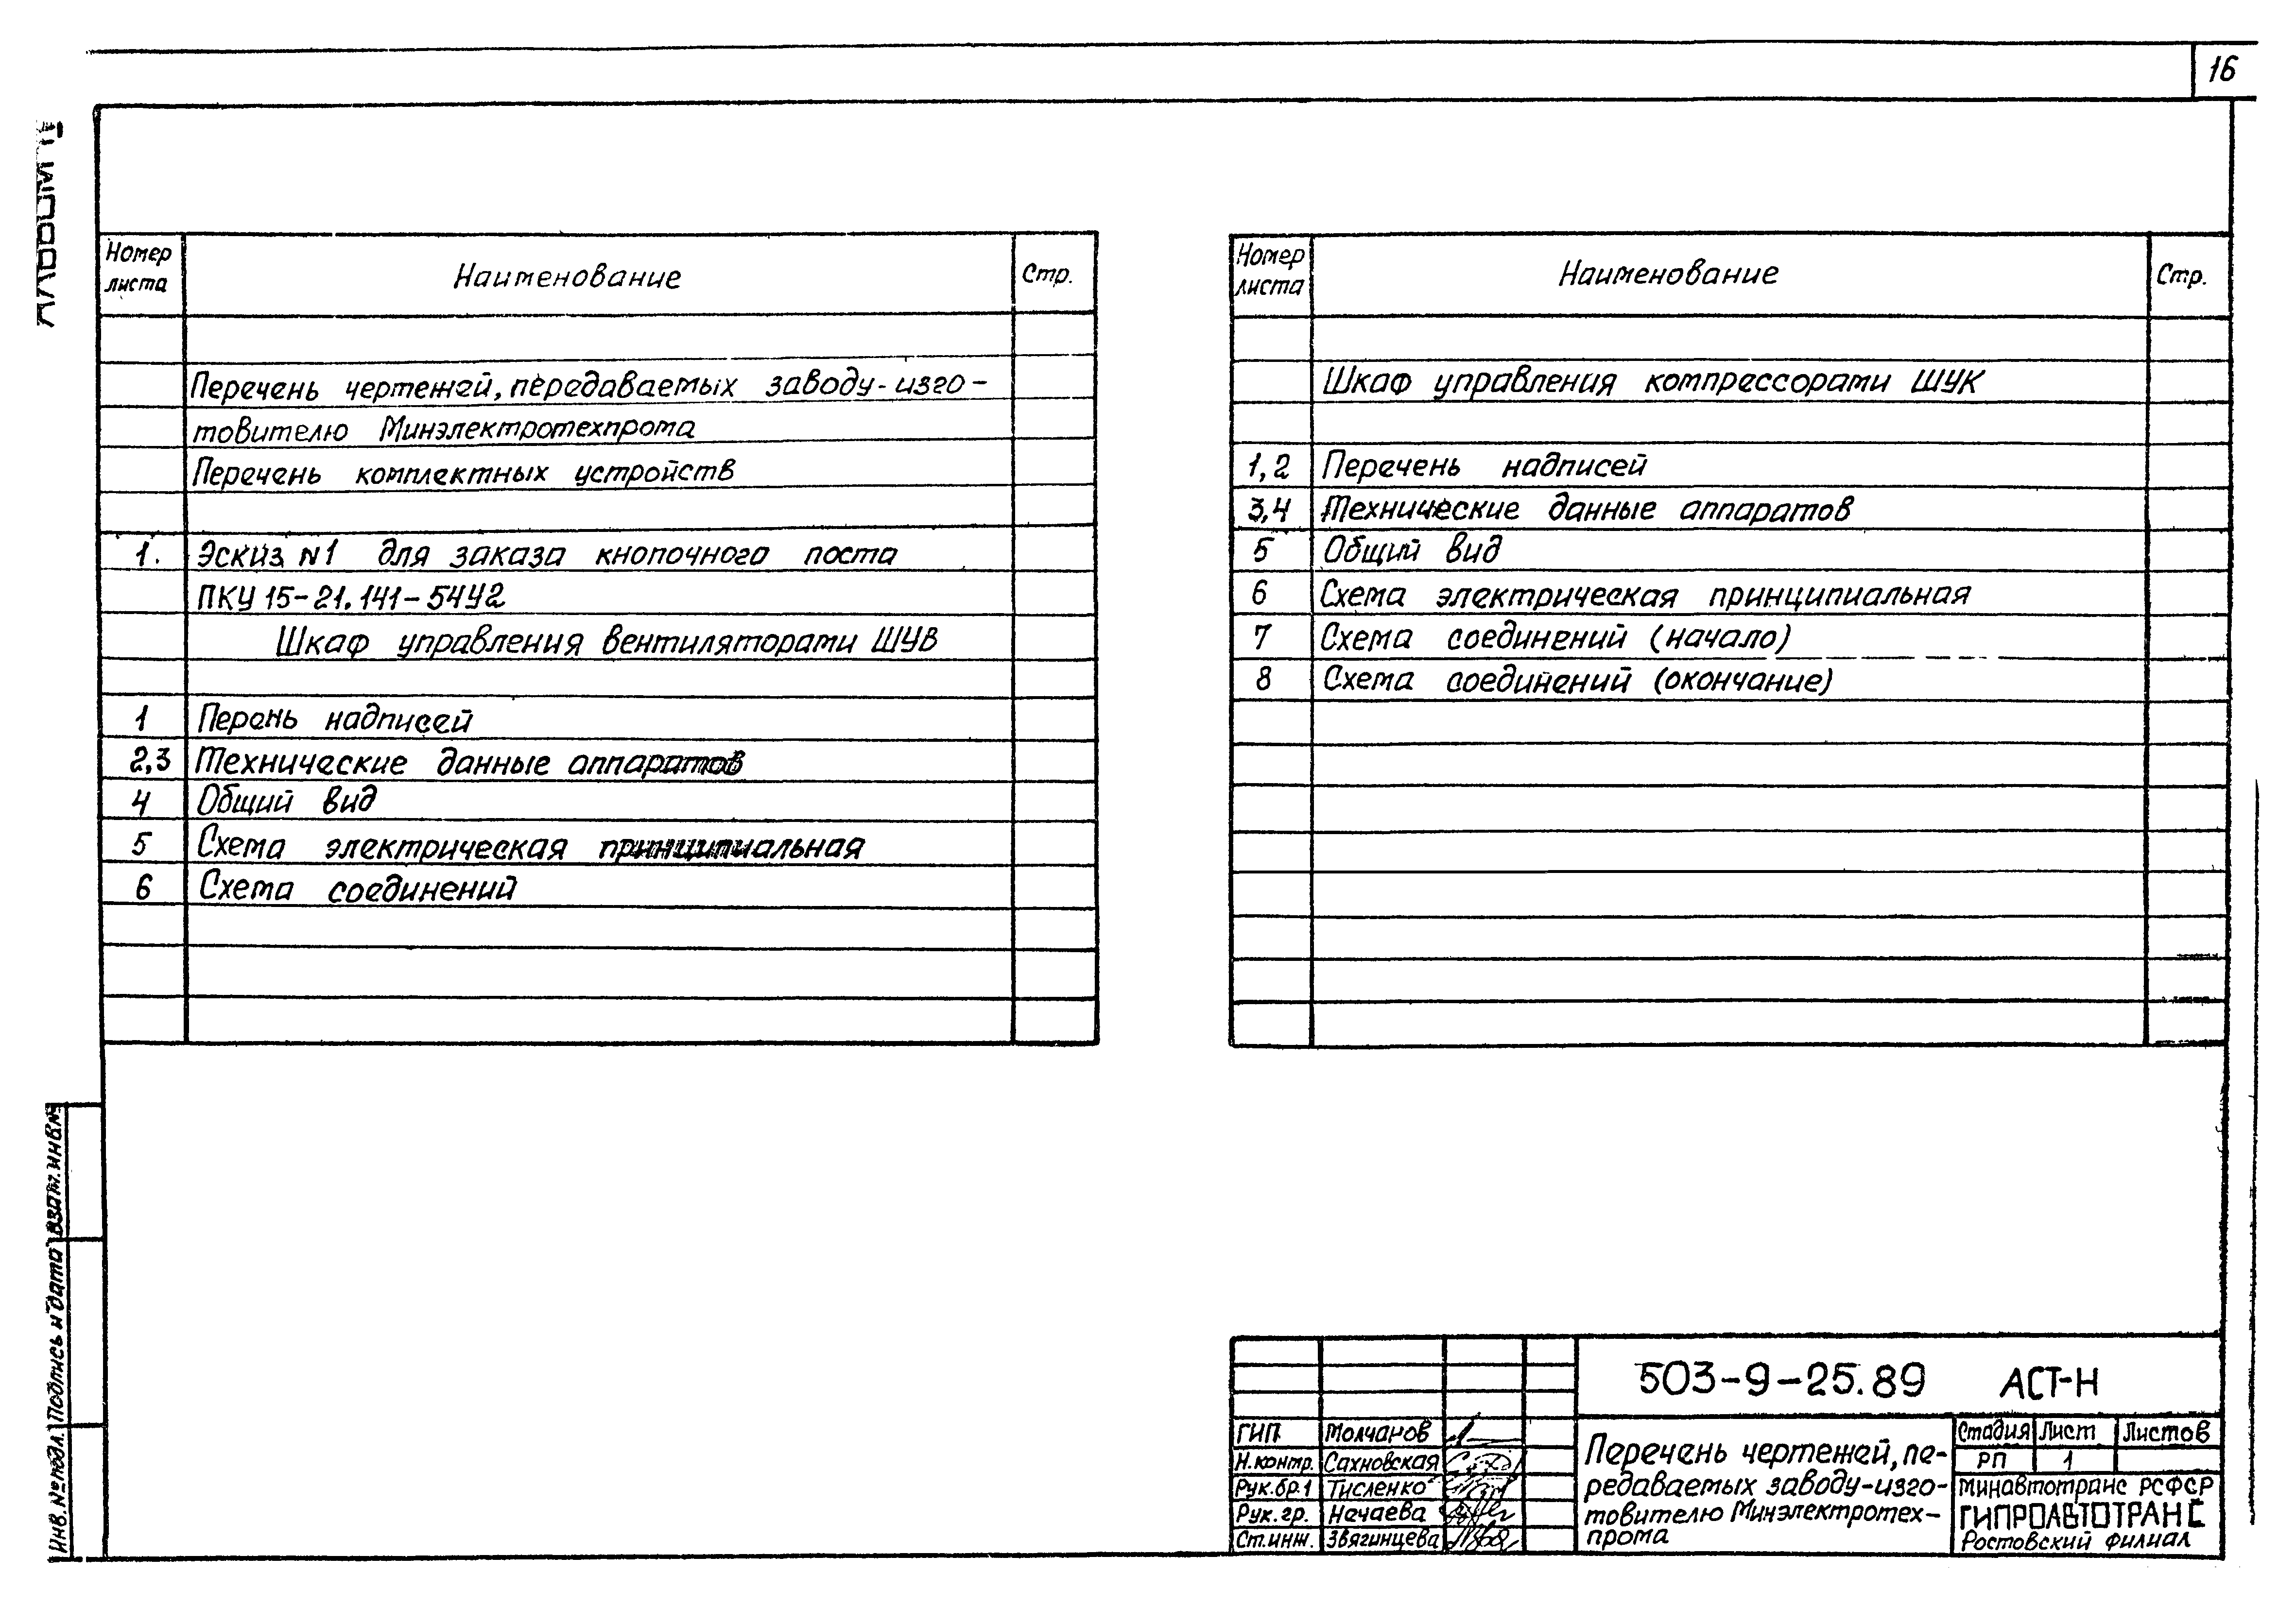 16
Номер листа Наименование Стр.
Перечень чертежей, передаваемых заводу-изго-
товителю Минэлектротехпрома
Перечень комплектных устройств
1. Эскиз N1 для заказа кнопочного поста
ПКУ 15-21.141-54У2
Шкаф управления вентиляторами ШУВ
1 Перень надписей
2,3 Технические данные аппаратов
4 Общий вид
5 Схема электрическая принципиальная
6 Схема соединений
Номер листа Наименование Стр.
Шкаф управления компрессорами ШУК
1,2 Перечень надписей
3,4 Технические данные аппаратов
5 Общий вид
6 Схема электрическая принципиальная
7 Схема соединений (начало)
8 Схема соединений (окончание)
Инв. № подл. Подпись и дата Взам. инв. №
503-9-25.89 АСТ-Н
ГИП Молчанов
Н.контр. Сахновская
Рук.бр.1 Тисленко
Рук.гр. Нечаева
Ст.инж. Звягинцева
Перечень чертежей, пе-
редаваемых заводу-изго-
товителю Минэлектротех-
прома
Стадия Лист Листов
РП 1
Минавтотранс РСФСР
ГИПРОАВТОТРАНС
Ростовский филиал